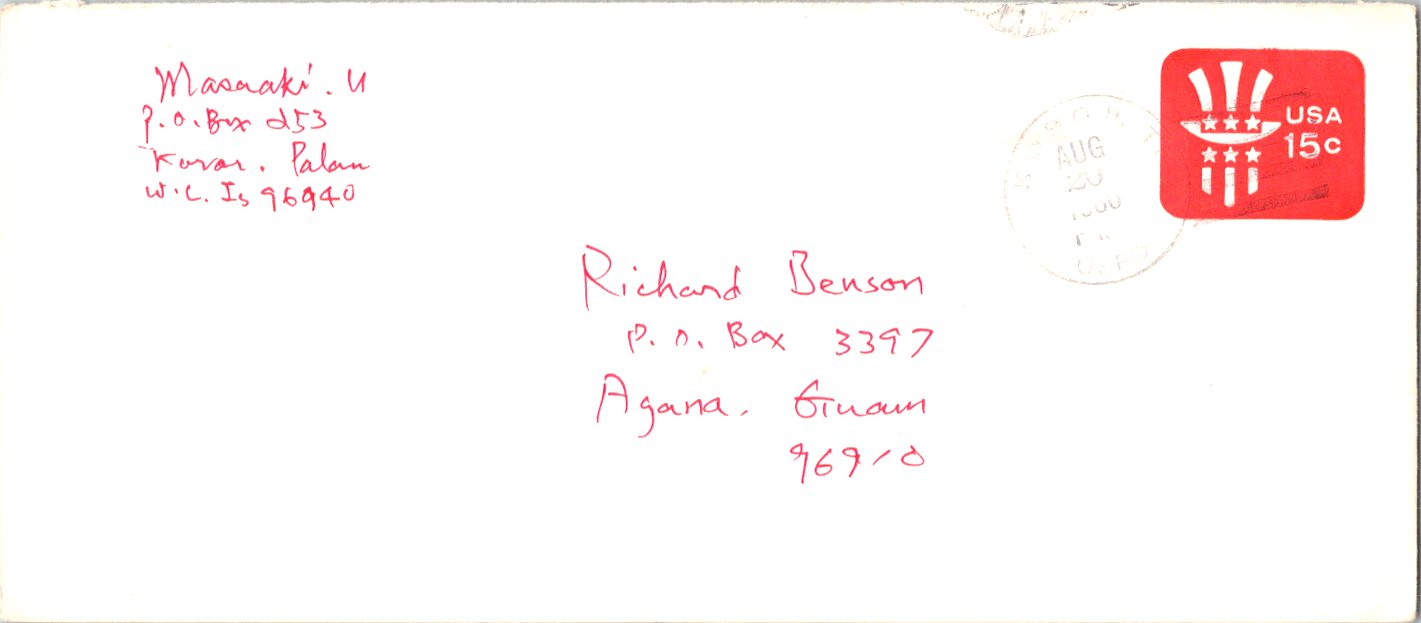 Masaaki. U
P.O. Box 253
Koror. Palau
W.C. Is 96940
USA
15c
AUG
20
Richard Benson
P.O. Box 3397
Agana, Guam
96910